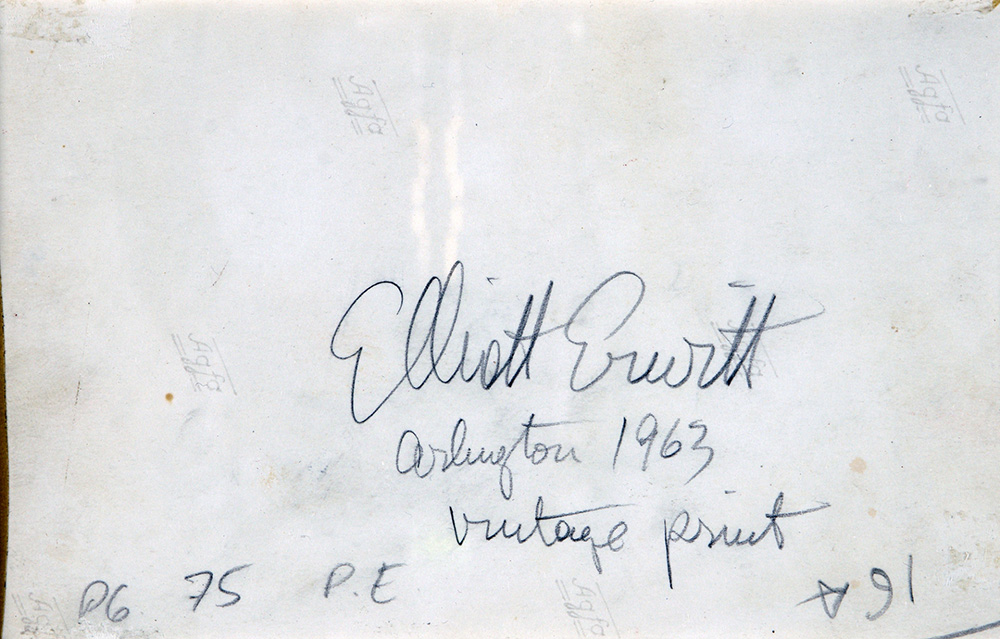 Agfa
Agfa
Elliott Erwitt
Agfa
Agfa
arlington 1963
vintage print
Agfa
Agfa
P6 75 P.E
91